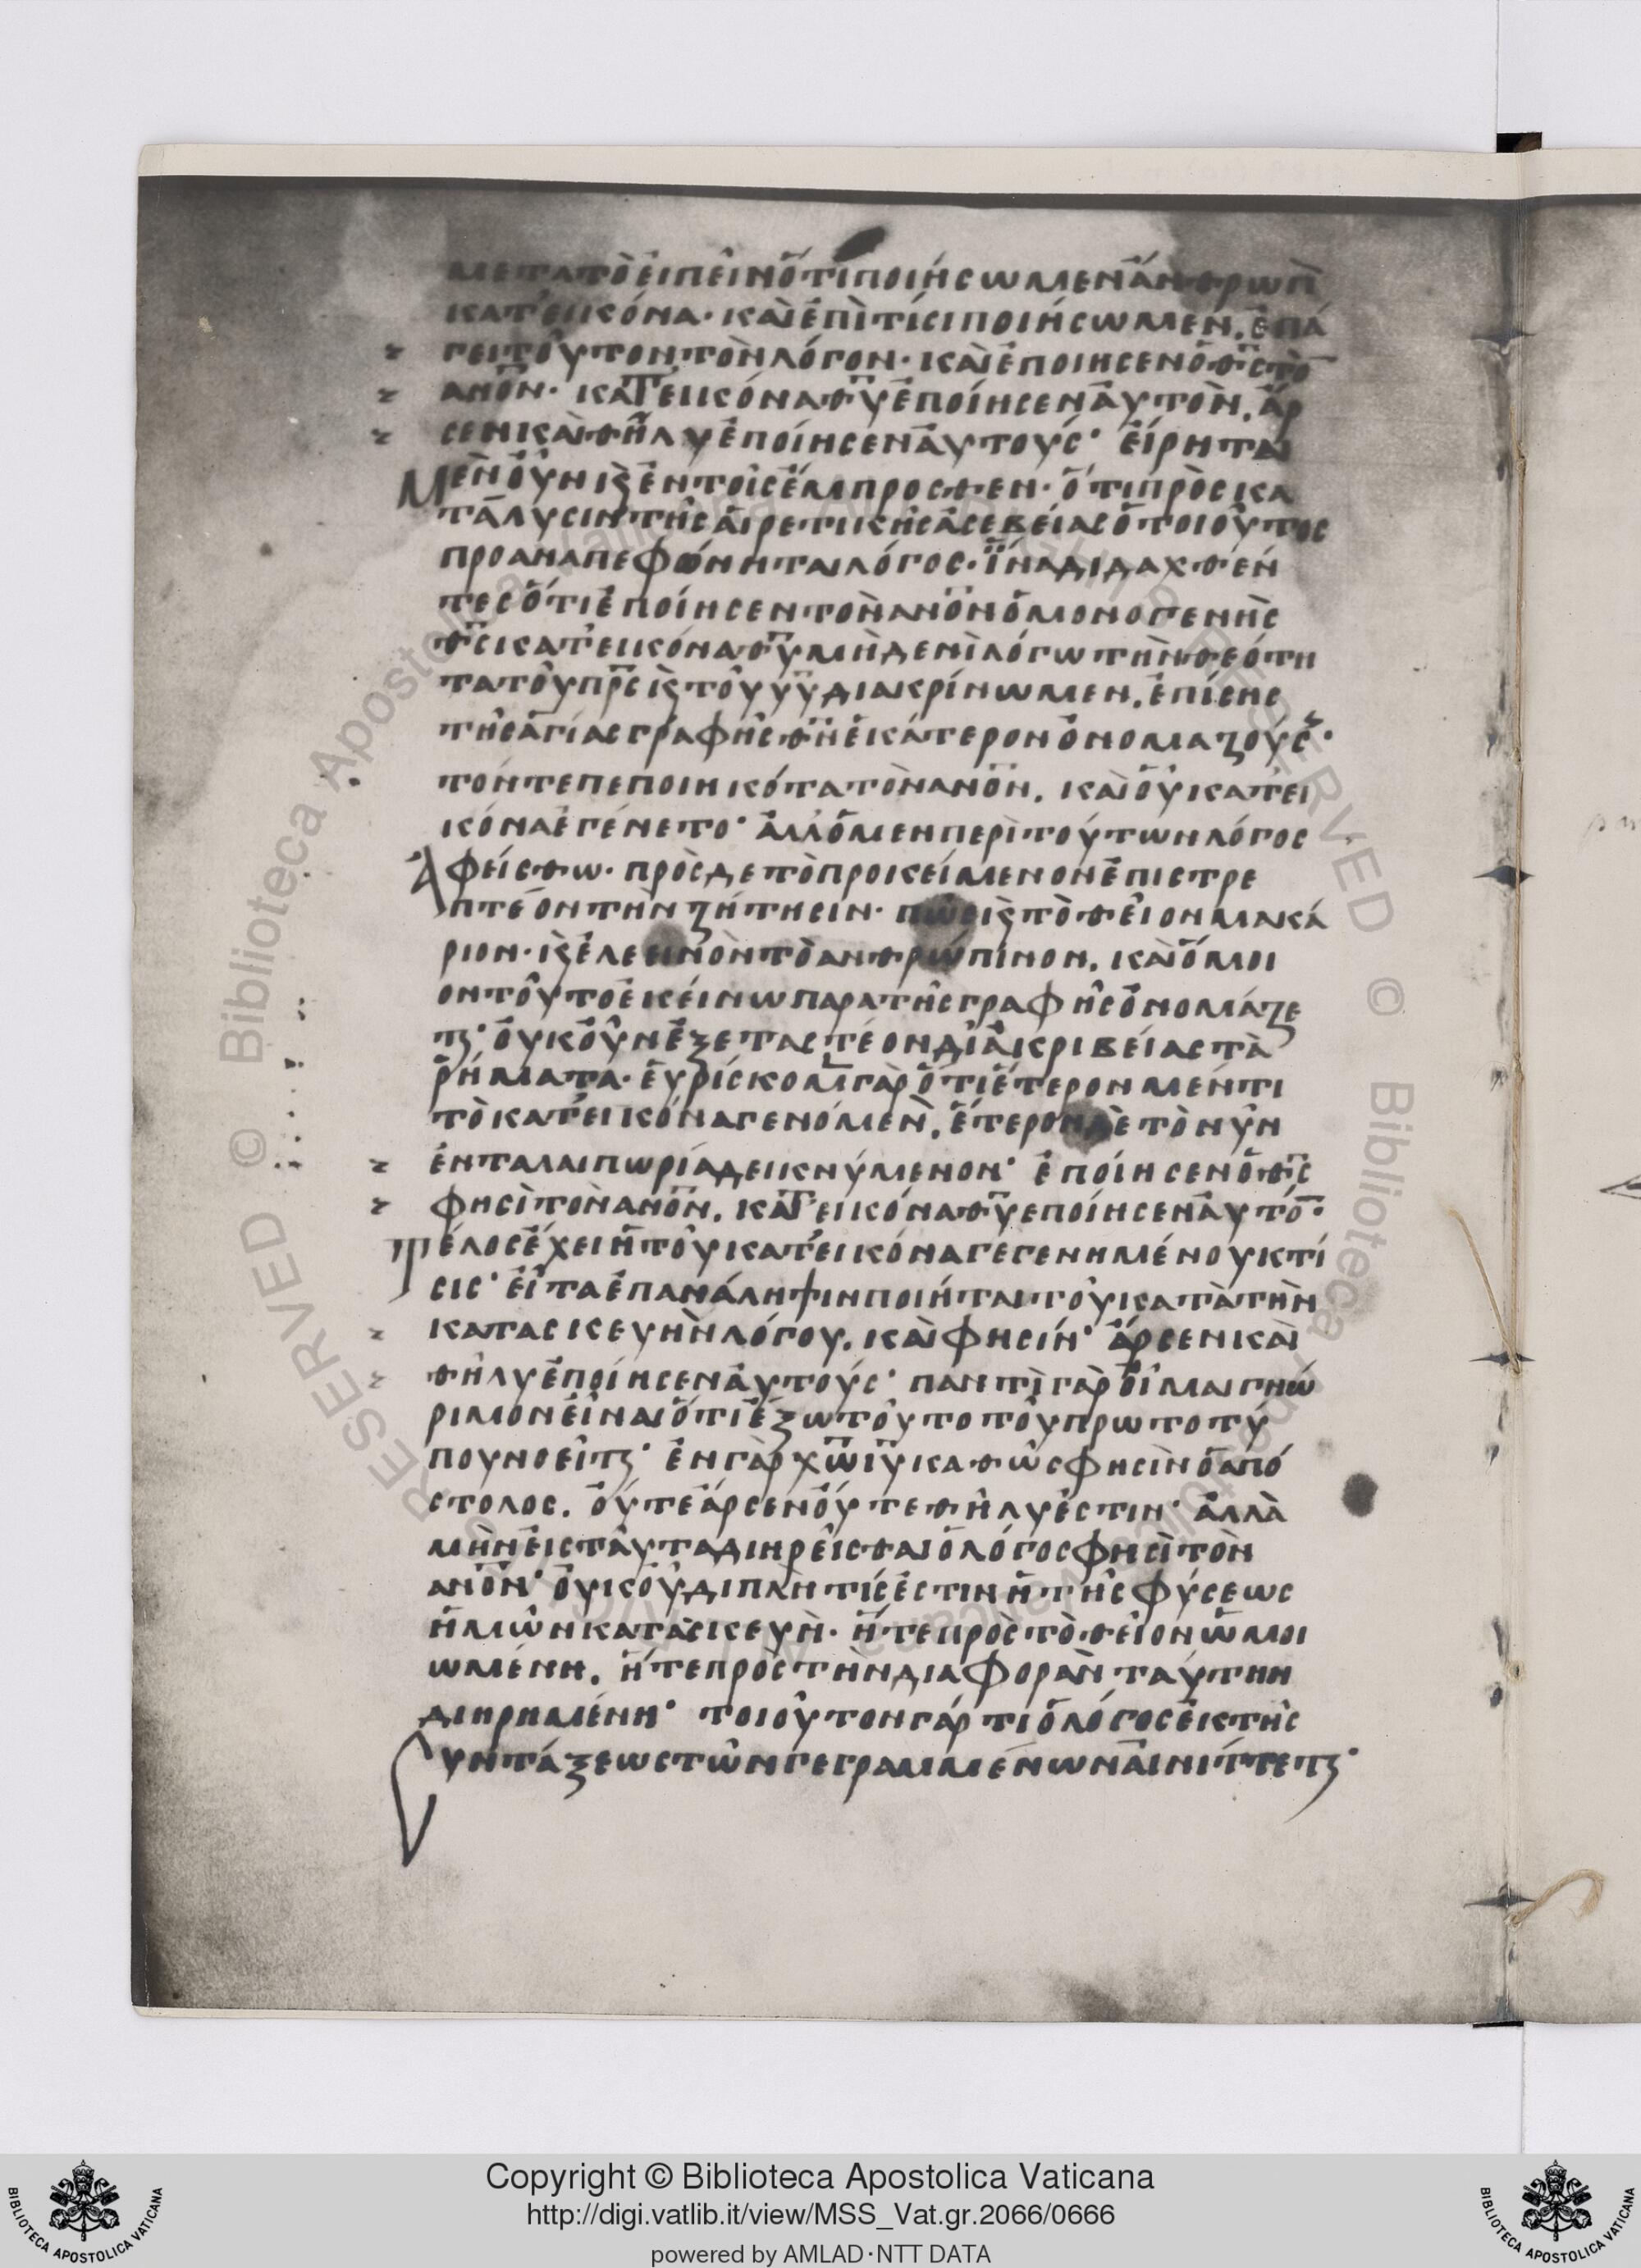 μετατὸἐιπεῖνὅτιποιήσωμενἄνθρωπ̀
κατ'ἐικόνα· καὶἐπὶτίσιποιήσωμεν. ἐπά
γειτοῦτοντὸνλόγον· καὶἐποιησενὁθ̅ς̅τὸ̅
ἀν̅ο̅ν̅· κατ'ἐικόναθ̅υ̅ἐποίησεναὐτὸν. ἄρ
σενκαὶθῆλυἐποίησεναὐτούς· ἐίρηται
Μὲνὀῦνκ̀ἐντοῖσἔμπροσθεν· ὅτιπρὸςκα
τάλυσιντῆσἁιρετικῆσἀσεβείασὁτοιοῦτος
προαναπεφώνηταιλόγος· ἵναδιδαχθέν
τεσὅτιἐποίησεντὸνἀν̅ο̅ν̅ὁμονογενὴς
θ̅ς̅κατ'ἐικόναθ̅υ̅μὴδενὶλόγωτὴνθεότη
τατοῦπ̅ρ̅ς̅κ̀τοῦυ̅υ̅διακρίνωμεν. ἐπίσης
τῆσἁγίασγραφῆσθ̅ν̅ἑκάτερονὀνομαζούσ·
τόντεπεποιηκότατὸνἀν̅ο̅ν̅. καὶὁῦκατ'ἐι
κόναἐγένετο· ἀλλ'ὁμενπερὶτούτωνλόγος
Ἀφείσθω. πρὸσδετὸπροκείμενονἐπιστρε
πτέοντὴνζήτησιν· πῶσκ̀τὸθεῖονμακά
ριον· κ̀ἐλεεινὸντὸανθρώπινον. καὶὅμοι
οντοῦτοἐκείνωπαρατῆσγραφῆσὀνομάζε
τ̣· ὀυκὀῦνἐξεταστέονδι'ἀκριβείαστὰ
ῥήματα· ἑυρίσκομγὰρὅτιἕτερονμέντι
τὸκατ'ἐικόναγενόμεν̀. ἕτερονδὲτὸνῦν
ἐνταλαιπωρίαδεικνύμενον· ἐποίησενὁθ̅ς̅
φησὶτὸνἀν̅ο̅ν̅. κατ'ἐικόναθ̅υ̅εποίησεναὐτό̅·
Τέλοσἔχειἡτοῦκατ'ἐικόναγεγενημένουκτί
σις· ἐῖταἐπανάληψινποιῆταιτοῦκατὰτὴν
κατασκευὴνλόγου. καὶφησίν· ἄρσενκαὶ
θῆλυἐποίησεναὐτούς· παντὶγὰρὀῖμαιγνώ
ριμονἐῖναιὅτιἔξωτοῦτοτοῦπρωτοτύ
πουνοεῖτ̣· ἐνγὰρχ̅ω̅ι̅υ̅καθὼσφησὶνὁἀπό
στολος. ὄυτεἄρσενὄυτεθῆλυἐστιν· ἀλλὰ
μὴνἐισταῦταδιηρεῖσθαιὁλόγοσφησὶτὸν
ἀν̅ο̅ν̅· ὀυκοῦδιπλῆτίσἐστινἡτῆσφύσεως
ἡμῶνκατασκευὴ· ἥτεπρὸστὸθεῖονὡμοι
ωμένη. ἥτεπρὸστὴνδιαφορὰνταύτην
διηρημένη· τοιοῦτονγάρτιὁλόγοσἐκτῆς
Συντάξεωστῶνγεγραμμένωνἀινίττετ̣·
Copyright © Biblioteca Apostolica Vaticana
http://digi.vatlib.it/view/MSS_Vat.gr.2066/0666
powered by AMLAD·NTT DATA